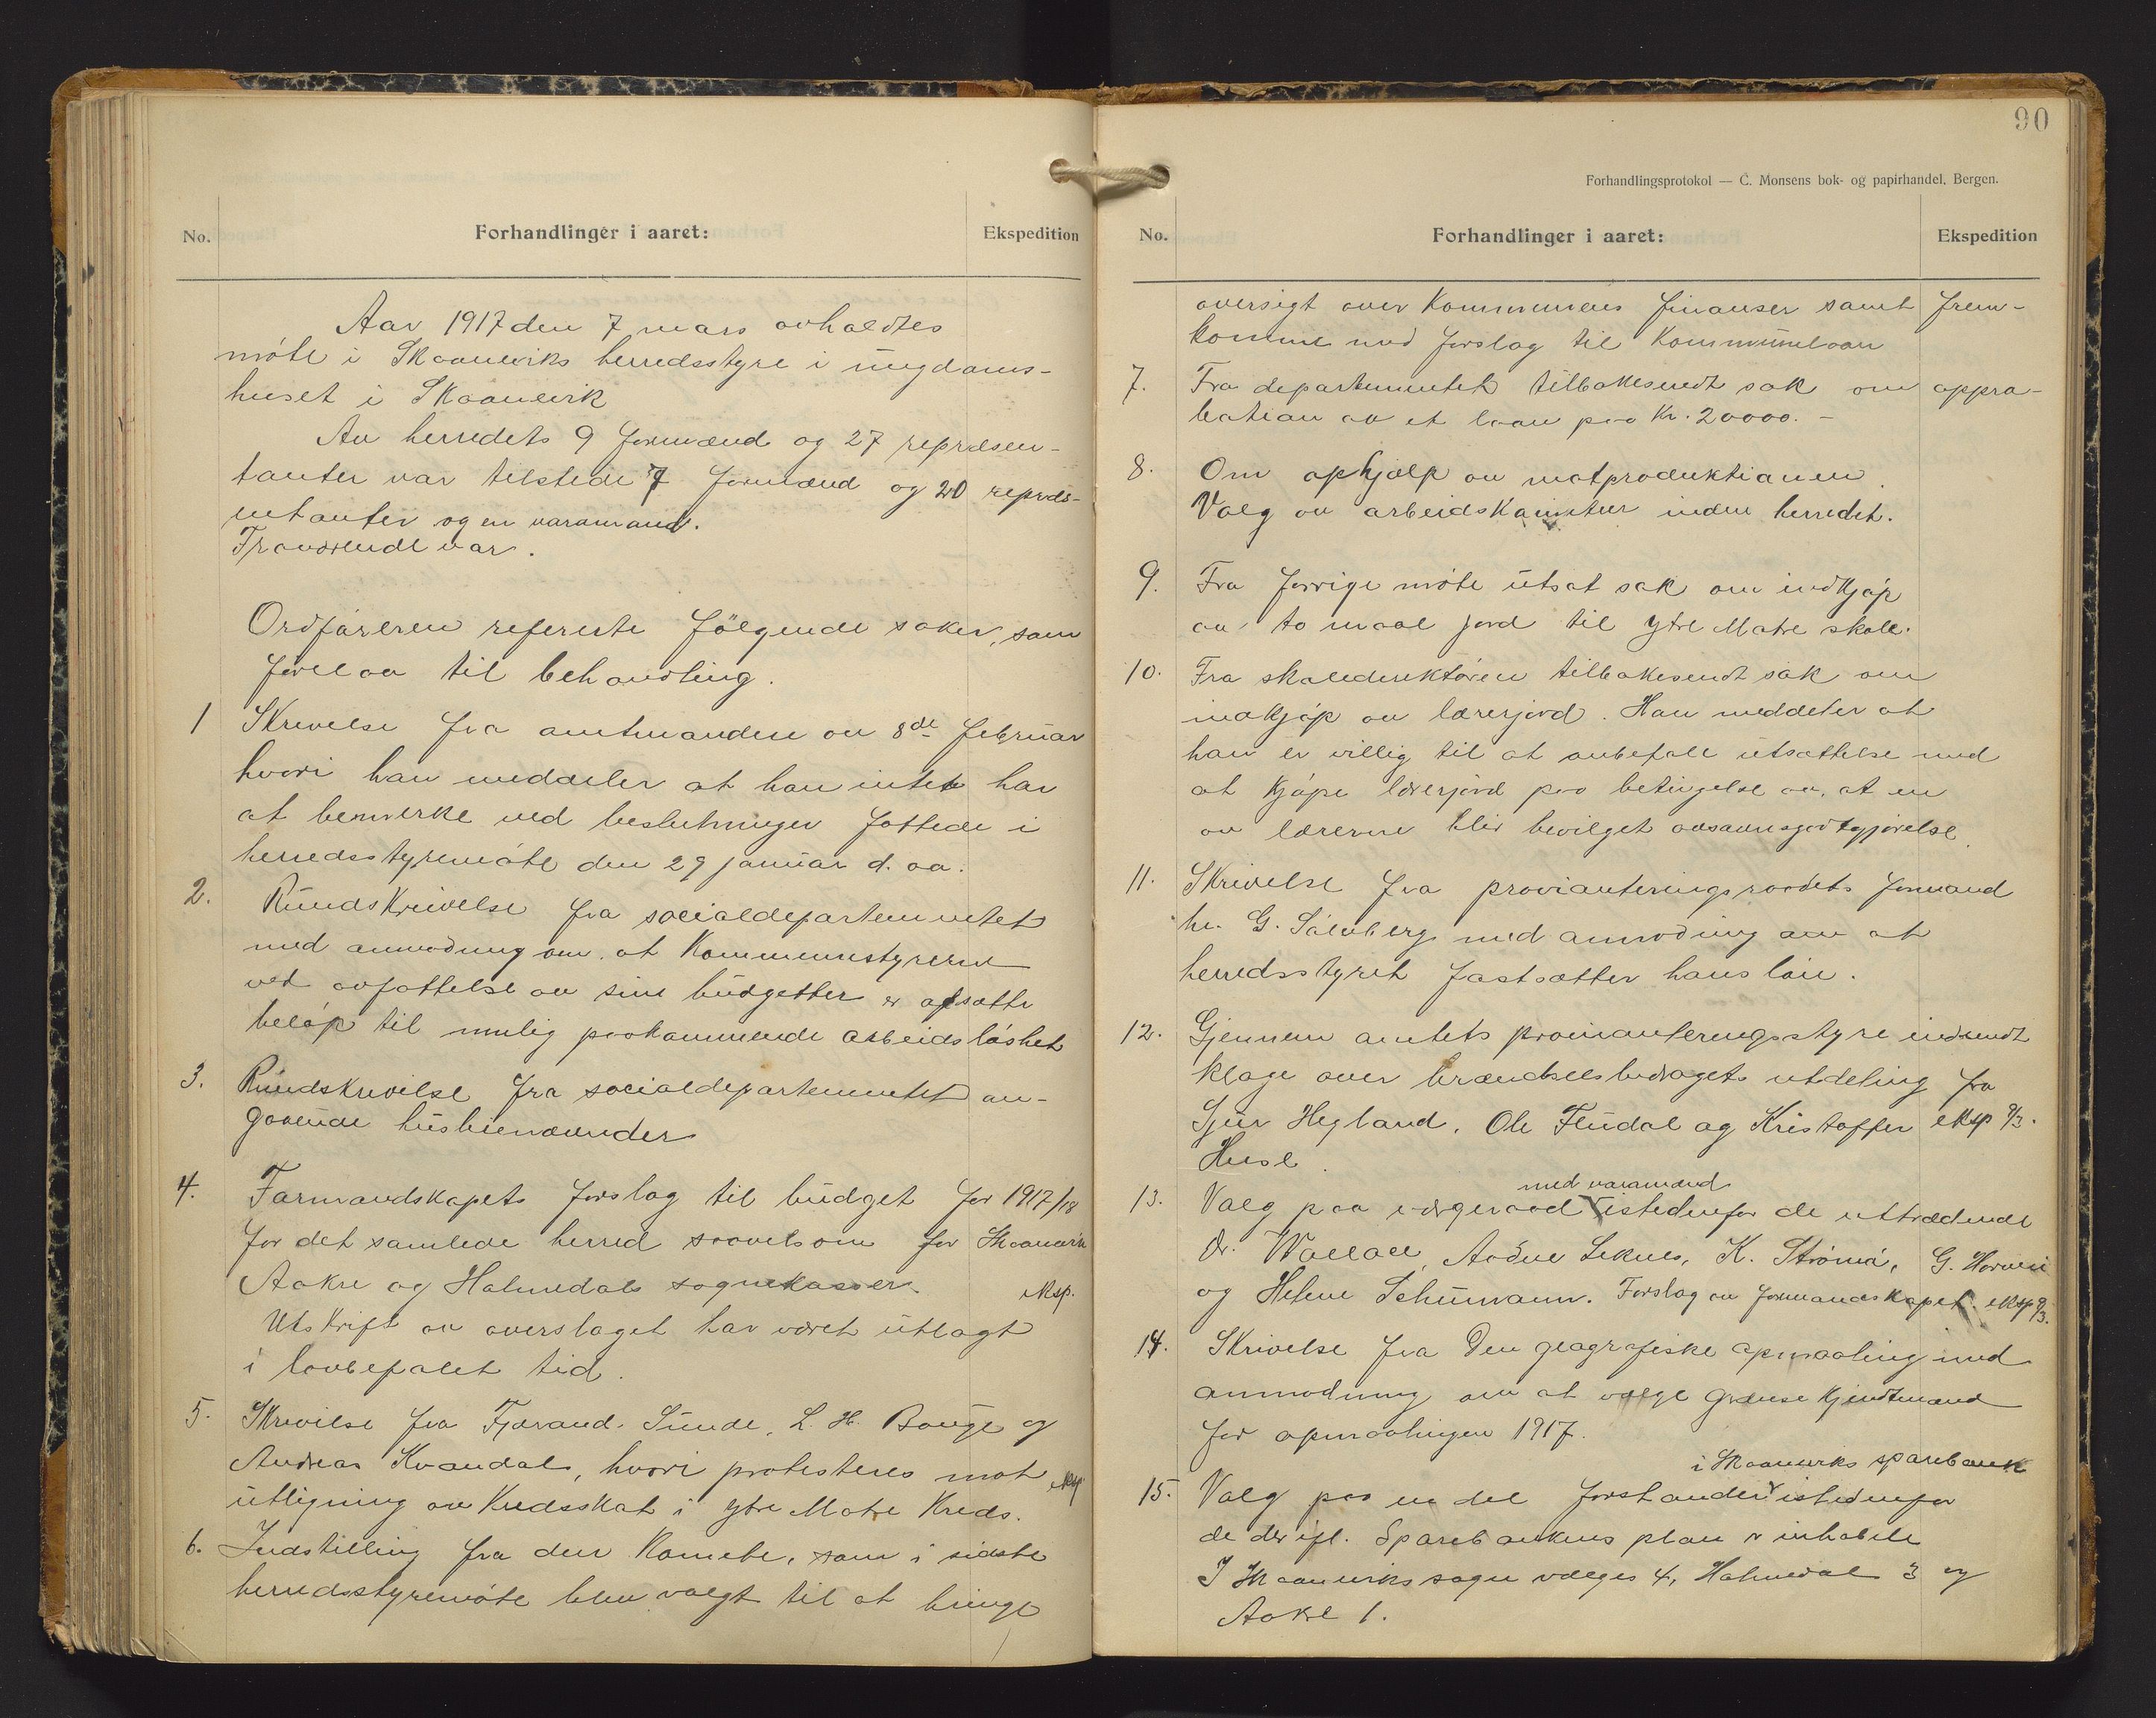 No.
Forhandlinger i aaret:
Ekspedition
Aar 1917 den 7 mars avholdtes
møte i Skaaneviks herredsstyre i ungdoms-
huset i Skaanevik
Av herredets 9 formænd og 27 repræsen-
tanter var tilstede 7 formænd og 20 repræs-
entanter og en varamand.
Fraværende var.
Ordføreren refererte følgende saker, som
forelaa til behandling.
1 Skrivelse fra amtmanden av 8de februar
hvori han meddeler at han intet har
at bemerke ved beslutninger fattede i
herredsstyremøte den 29 januar d. aa.
2. Rundskrivelse fra socialdepartementet
med anmodning om at kommunestyrerne
ved avfattelse av sine budgetter er opsatte
beløp til mulig paakommende arbeidsløshet
3. Rundskrivelse fra socialdepartementet an-
gaaende husleienævnder
4. Formandskapets forslag til budget for 1917/18
for det samlede herred saavelsom for Skaanevik
Aakre og Holmedals sognekasser. eksp.
Utskrift av overslaget har været utlagt
i lovbefalet tid.
5. Skrivelse fra Fjærand. Sunde, L. H. Bauge og
Andreas Kvandal, hvori protesteres mot eksp
utligning av kredsskat i ytre Matre kreds.
6. Indstilling fra den komite, som i sidste
herredsstyremøte blev valgt til at bringe
90
Forhandlingsprotokol — C. Monsens bok- og papirhandel, Bergen.
No.
Forhandlinger i aaret:
Ekspedition
oversigt over kommunens finanser samt frem-
komme med forslag til kommunelaan
7. Fra departementet tilbakesendt sak om appro-
bation av et laan paa Kr. 20000.-
8. Om ophjælp av matproduktionen.
Valg av arbeidskomiteer inden herredet.
9. Fra forrige møte utsat sak om indkjøp
av to maal jord til ytre Matre skole.
10. Fra skoledirektøren tilbakesendt sak om
indkjøp av lærerjord. Han meddeler at
han er villig til at anbefale utsættelse med
at kjøpe lærerjord paa betingelse av, at en
av lærerne blir bevilget avsavnsgodtgjørelse.
11. Skrivelse fra provianteringsraadets formand
hr. G. Salenberg med anmodning om at
herredsstyret fastsætter hans løn.
12. Gjennem amtets provianteringsstyre indsendt
klage over brændselsbidragets utdeling fra
Sjur Hegland, Ole Fludal og Kristoffer eksp 9/3.
Huse.
13. Valg paa vergeraad istedenfor de uttrædende
med varamænd
Dr. Wallace, Aadne Leknes, K. Strømø, G. Horneri
og Helene Schumann. Forslag av formandskapet. eksp 9/3.
14. Skrivelse fra Den geografiske opmaaling med
anmodning om at vælge grænsekjendtmænd
for opmaalingen 1917.
i Skaaneviks sparebank
15. Valg paa en del forstandere istedenfor
de der ifl. Sparebankens plan er inhabile
I Skaaneviks sogn vælges 4, Holmedal 3 og
Aakre 1.